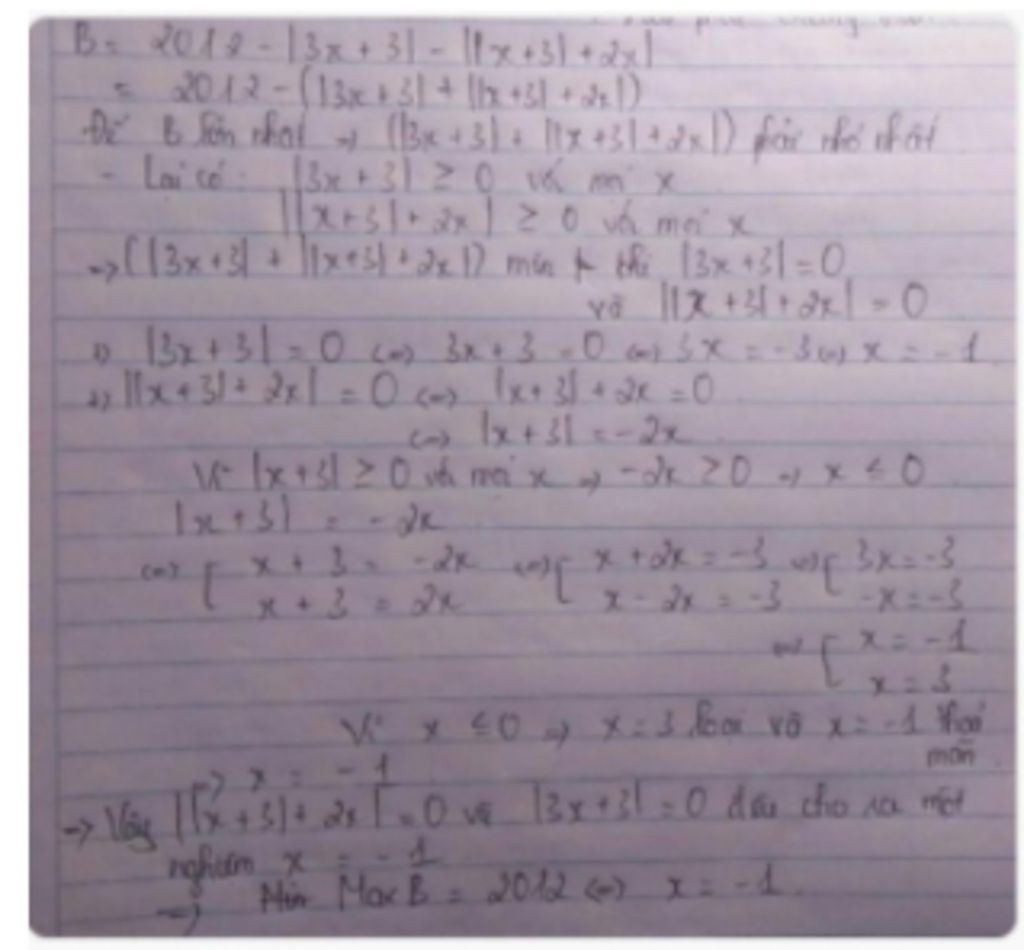 B = 2012 - |3x + 3| - ||x + 3| + 2x|
= 2012 - (|3x + 3| + ||x + 3| + 2x|)
Để B lớn nhất → (|3x + 3| + ||x + 3| + 2x|) phải nhỏ nhất
- Lại có: |3x + 3| ≥ 0 với mọi x
||x + 3| + 2x| ≥ 0 với mọi x
→ (|3x + 3| + ||x + 3| + 2x|) min thì |3x + 3| = 0
và ||x + 3| + 2x| = 0
|3x + 3| = 0 <=> 3x + 3 = 0 <=> 3x = -3 <=> x = -1
||x + 3| + 2x| = 0 <=> |x + 3| + 2x = 0
<=> |x + 3| = -2x
Vì |x + 3| ≥ 0 với mọi x → -2x ≥ 0 → x ≤ 0
|x + 3| = -2x
<=> [ x + 3 = -2x <=> [ x + 2x = -3 <=> [ 3x = -3
x + 3 = 2x x - 2x = -3 -x = -3
<=> [ x = -1
x = 3
Vì x ≤ 0 => x = 3 loại và x = -1 thoả
mãn
=> x = -1
→ Vậy ||x + 3| + 2x| = 0 và |3x + 3| = 0 đều cho ra một
nghiệm x = -1
→ Max B = 2012 <=> x = -1